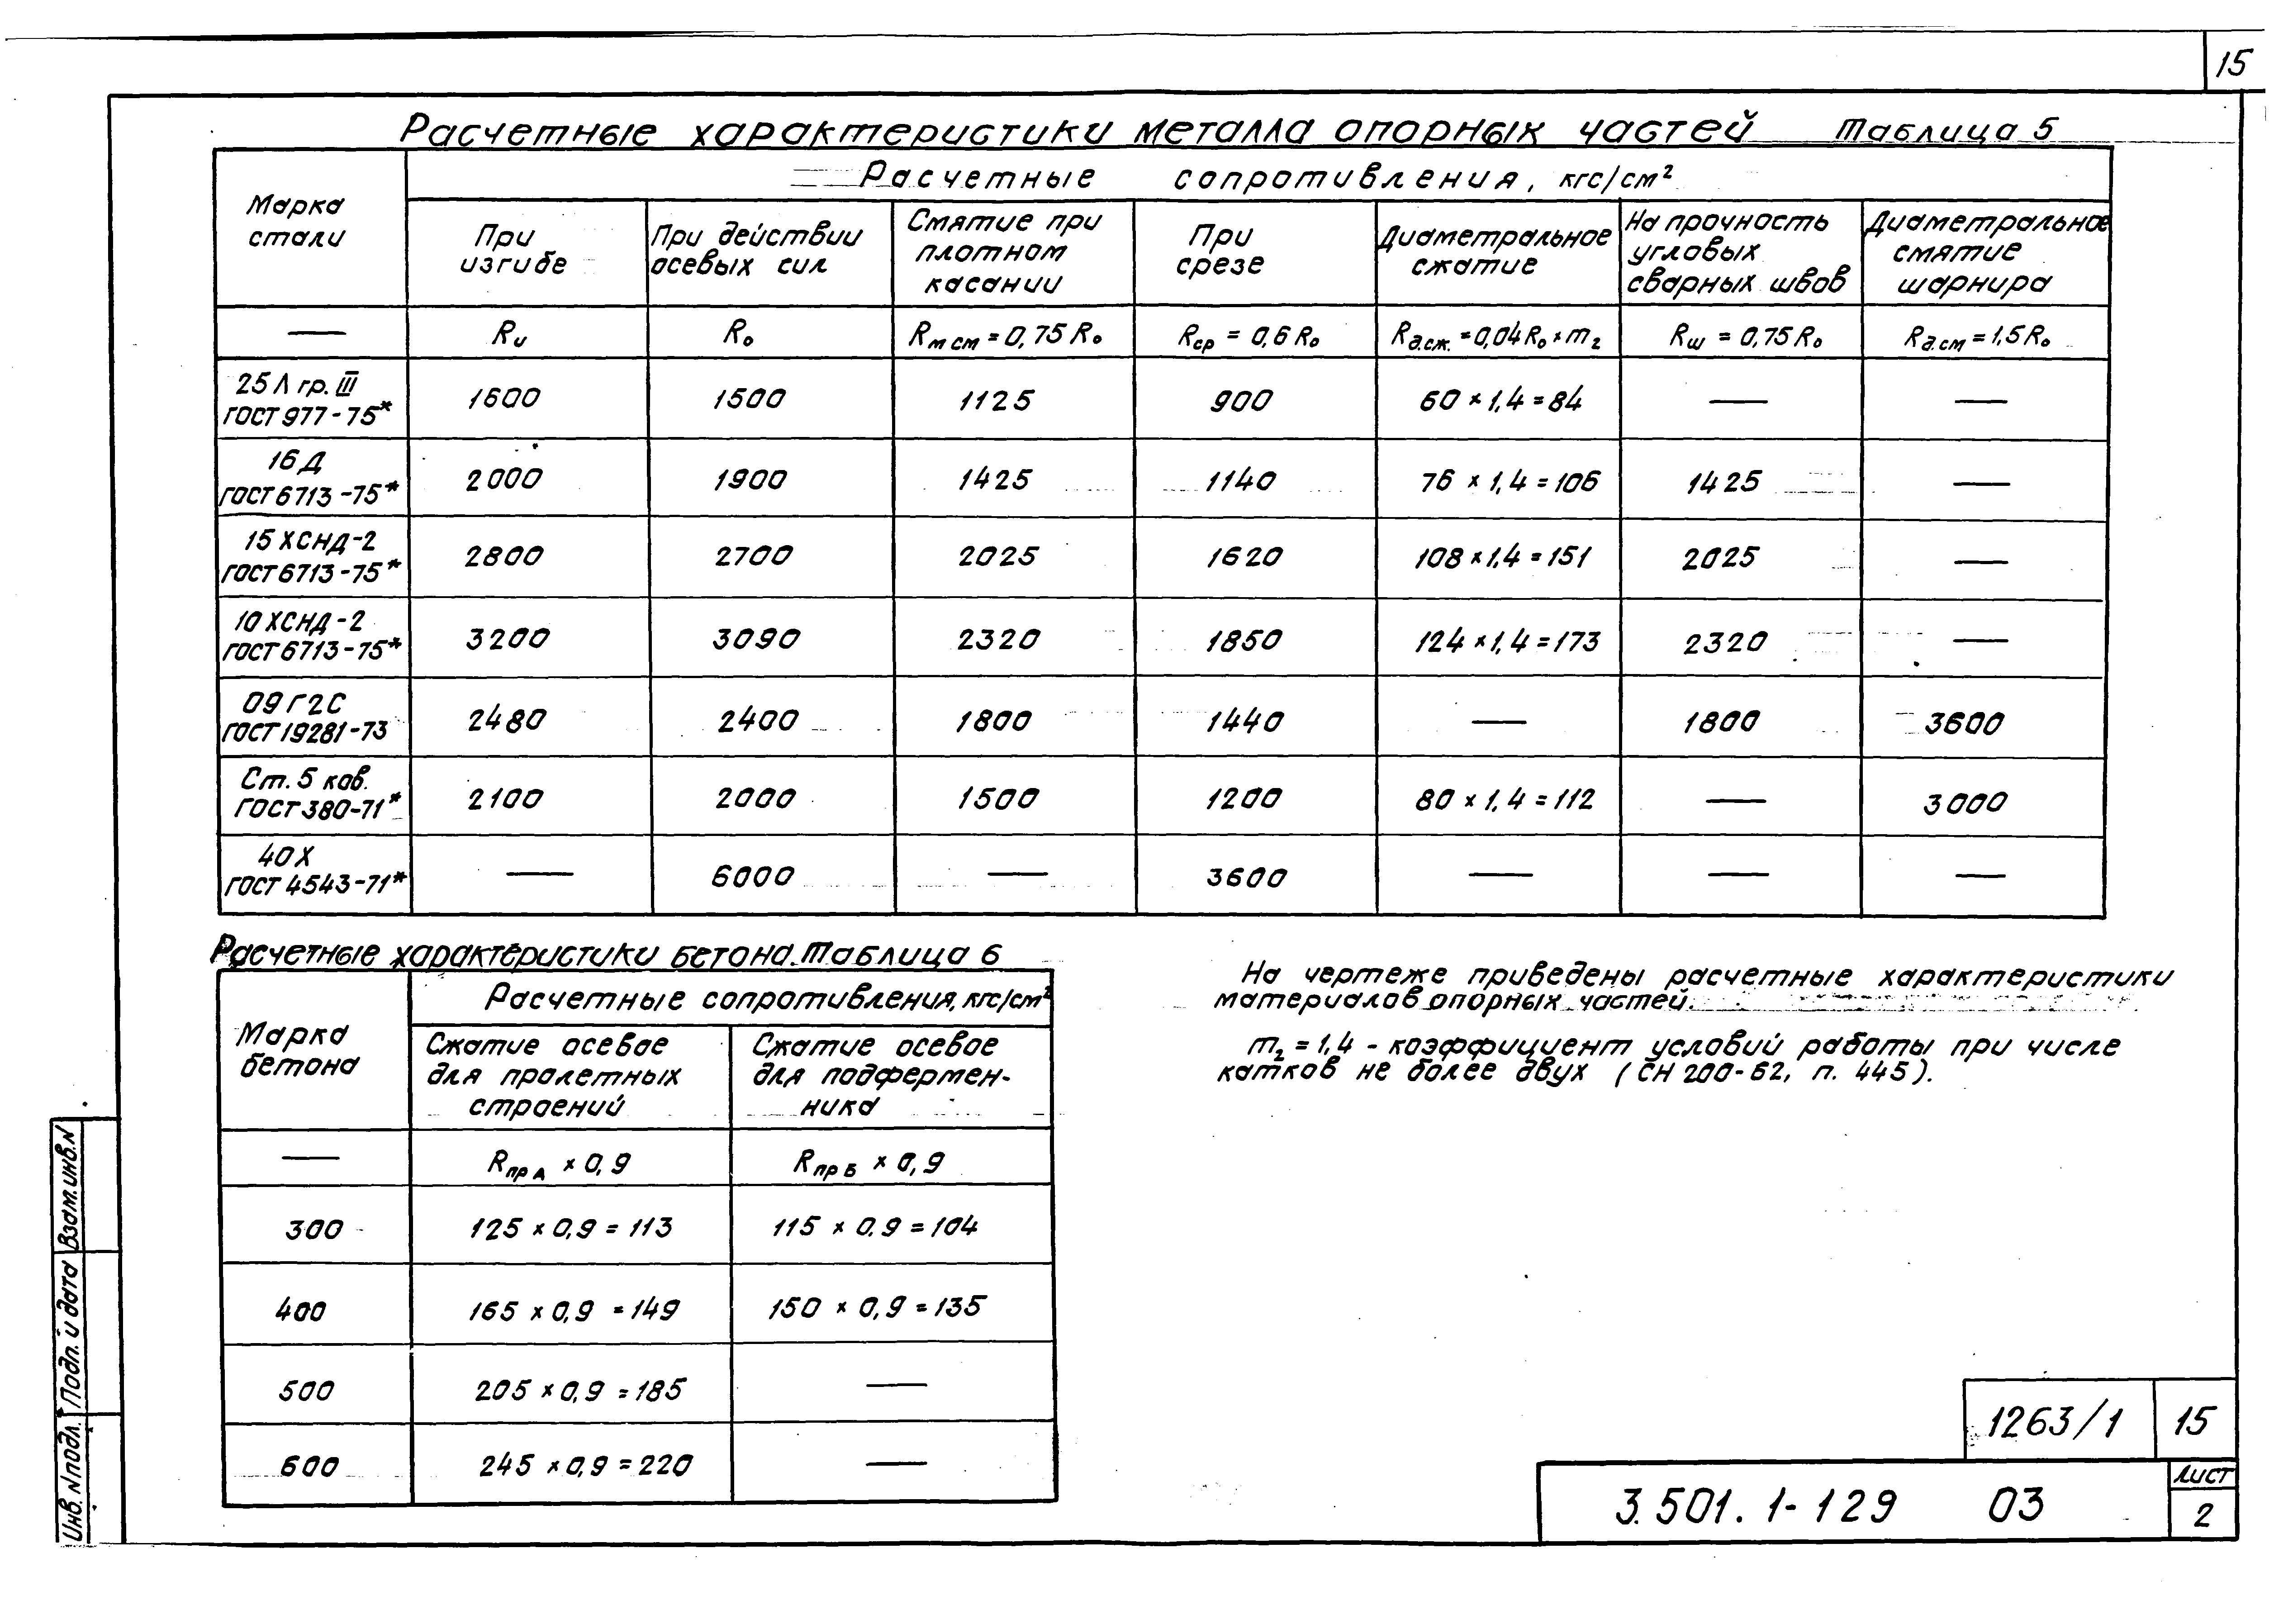 15
Расчетные характеристики металла опорных частей Таблица 5
Марка стали
Расчетные сопротивления, кгс/см²
При изгибе
При действии осевых сил
Смятие при плотном касании
При срезе
Диаметральное сжатие
На прочность угловых сварных швов
Диаметральное смятие шарнира
— Rи Rо Rт см = 0,75 Rо Rср = 0,6 Rо Rд.сж. = 0,04 Rо × m₂ Rш = 0,75 Rо Rд.см = 1,5 Rо
25Л гр. III ГОСТ 977-75* 1600 1500 1125 900 60 × 1,4 = 84 — —
16Д ГОСТ 6713-75* 2000 1900 1425 1140 76 × 1,4 = 106 1425 —
15 ХСНД-2 ГОСТ 6713-75* 2800 2700 2025 1620 108 × 1,4 = 151 2025 —
10 ХСНД-2 ГОСТ 6713-75* 3200 3090 2320 1850 124 × 1,4 = 173 2320 —
09Г2С ГОСТ 19281-73 2480 2400 1800 1440 — 1800 3600
Ст. 5 ков. ГОСТ 380-71* 2100 2000 1500 1200 80 × 1,4 = 112 — 3000
40Х ГОСТ 4543-71* — 6000 — 3600 — — —
Расчетные характеристики бетона. Таблица 6
Марка бетона
Расчетные сопротивления, кгс/см²
Сжатие осевое для пролетных строений
Сжатие осевое для подфермен-ника
— Rпр А × 0,9 Rпр Б × 0,9
300 125 × 0,9 = 113 115 × 0,9 = 104
400 165 × 0,9 = 149 150 × 0,9 = 135
500 205 × 0,9 = 185 —
600 245 × 0,9 = 220 —
На чертеже приведены расчетные характеристики
материалов опорных частей.
m₂ = 1,4 - коэффициент условий работы при числе
катков не более двух (СН 200-62, п. 445).
Взам. инв. N
Подп. и дата
Инв. N подл.
1263/1 15
3.501.1-129 03
Лист
2